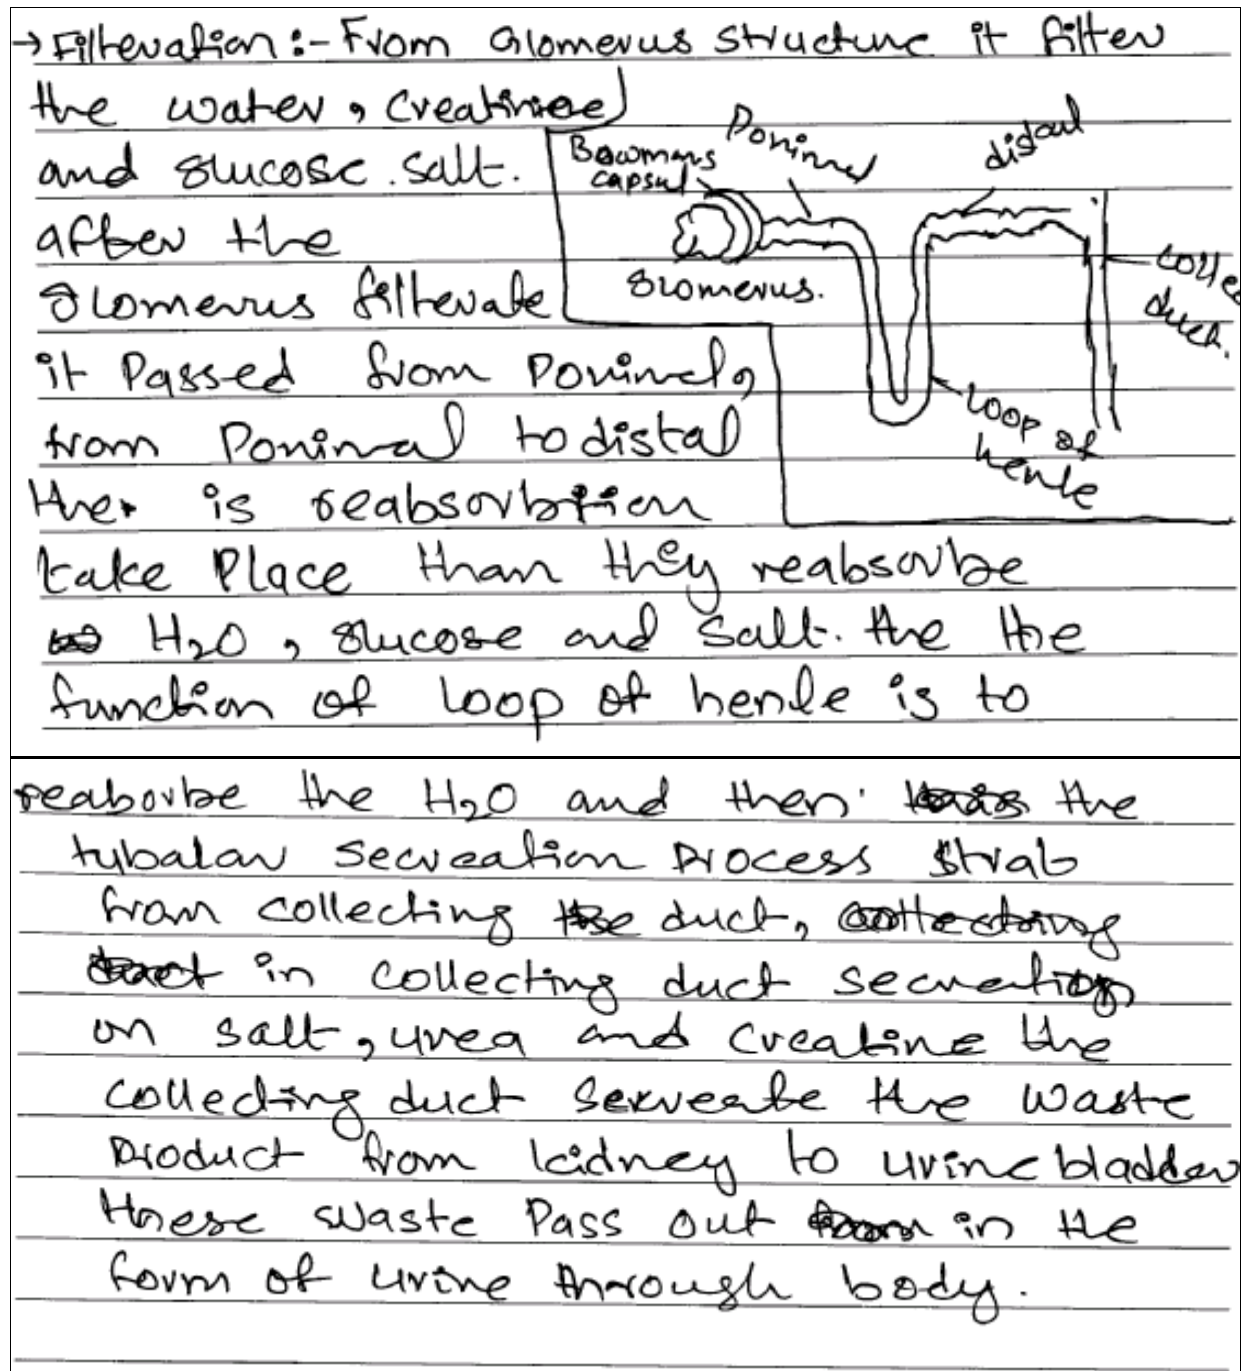 → Filtevation :- From Glomerus structure it filter
the water, creatinine
and glucose. salt.
after the
glomerus filtevate
it Passed from Poninel,
from Poninal to distal
the is reabsorbtion
take Place than they reabsorbe
H₂O, glucose and salt. the the
function of loop of henle is to
Bowmans
capsul
Poninel
distal
glomerus.
collec
duct.
loop of
henle
reaborbe the H₂O and then the
tybalar secreation process strab
from collecting duct,
in collecting duct secreation
on salt, urea and creatine the
collecting duct serveate the waste
product from kidney to urine bladder
these waste Pass out in the
form of urine through body.